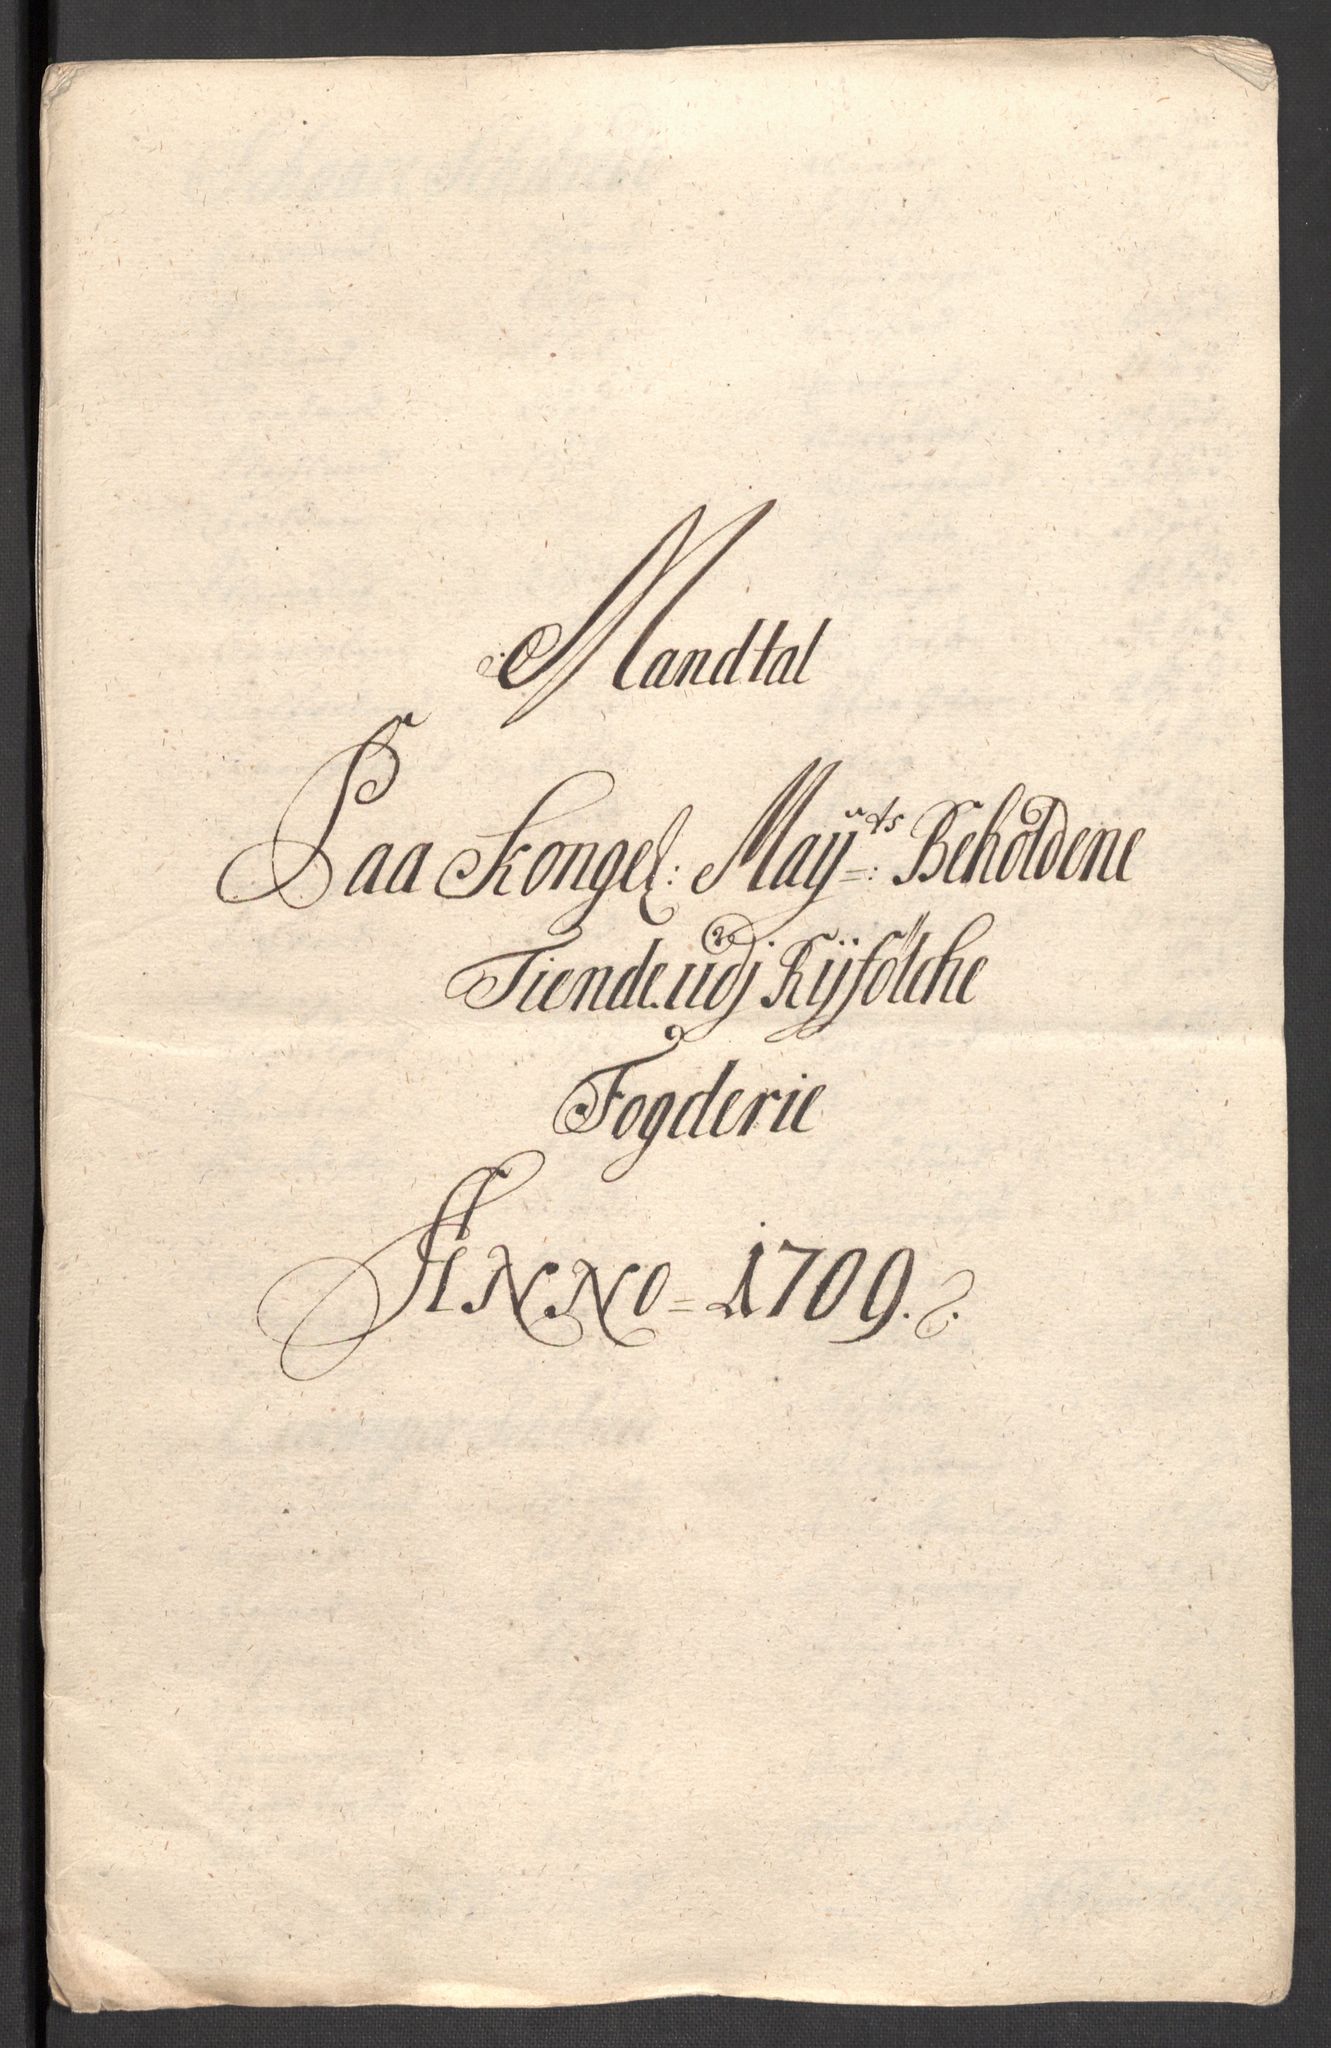 Mandtal
Paa Kongel: Maÿts: Beholdene
Tiende udj Rÿfölche
Fogderie
ANNO = 1709.